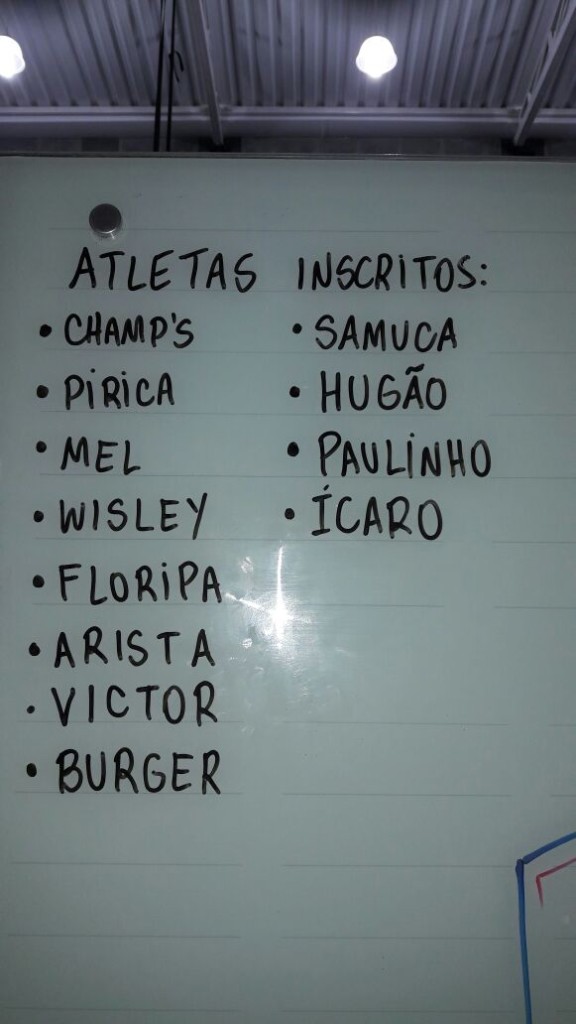 ATLETAS INSCRITOS:
• CHAMP'S
• PIRICA
• MEL
• WISLEY
• FLORIPA
• ARISTA
• VICTOR
• BURGER
• SAMUCA
• HUGÃO
• PAULINHO
• ÍCARO